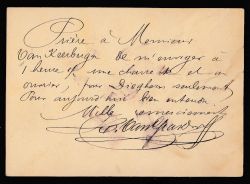 Prière à Monsieur
Van Keerbergen de m'envoyer à
1 heure une charrette et un
ouvrier, pour Droghen seulement
Pour aujourd'hui bien entendu.
Mille remerciements